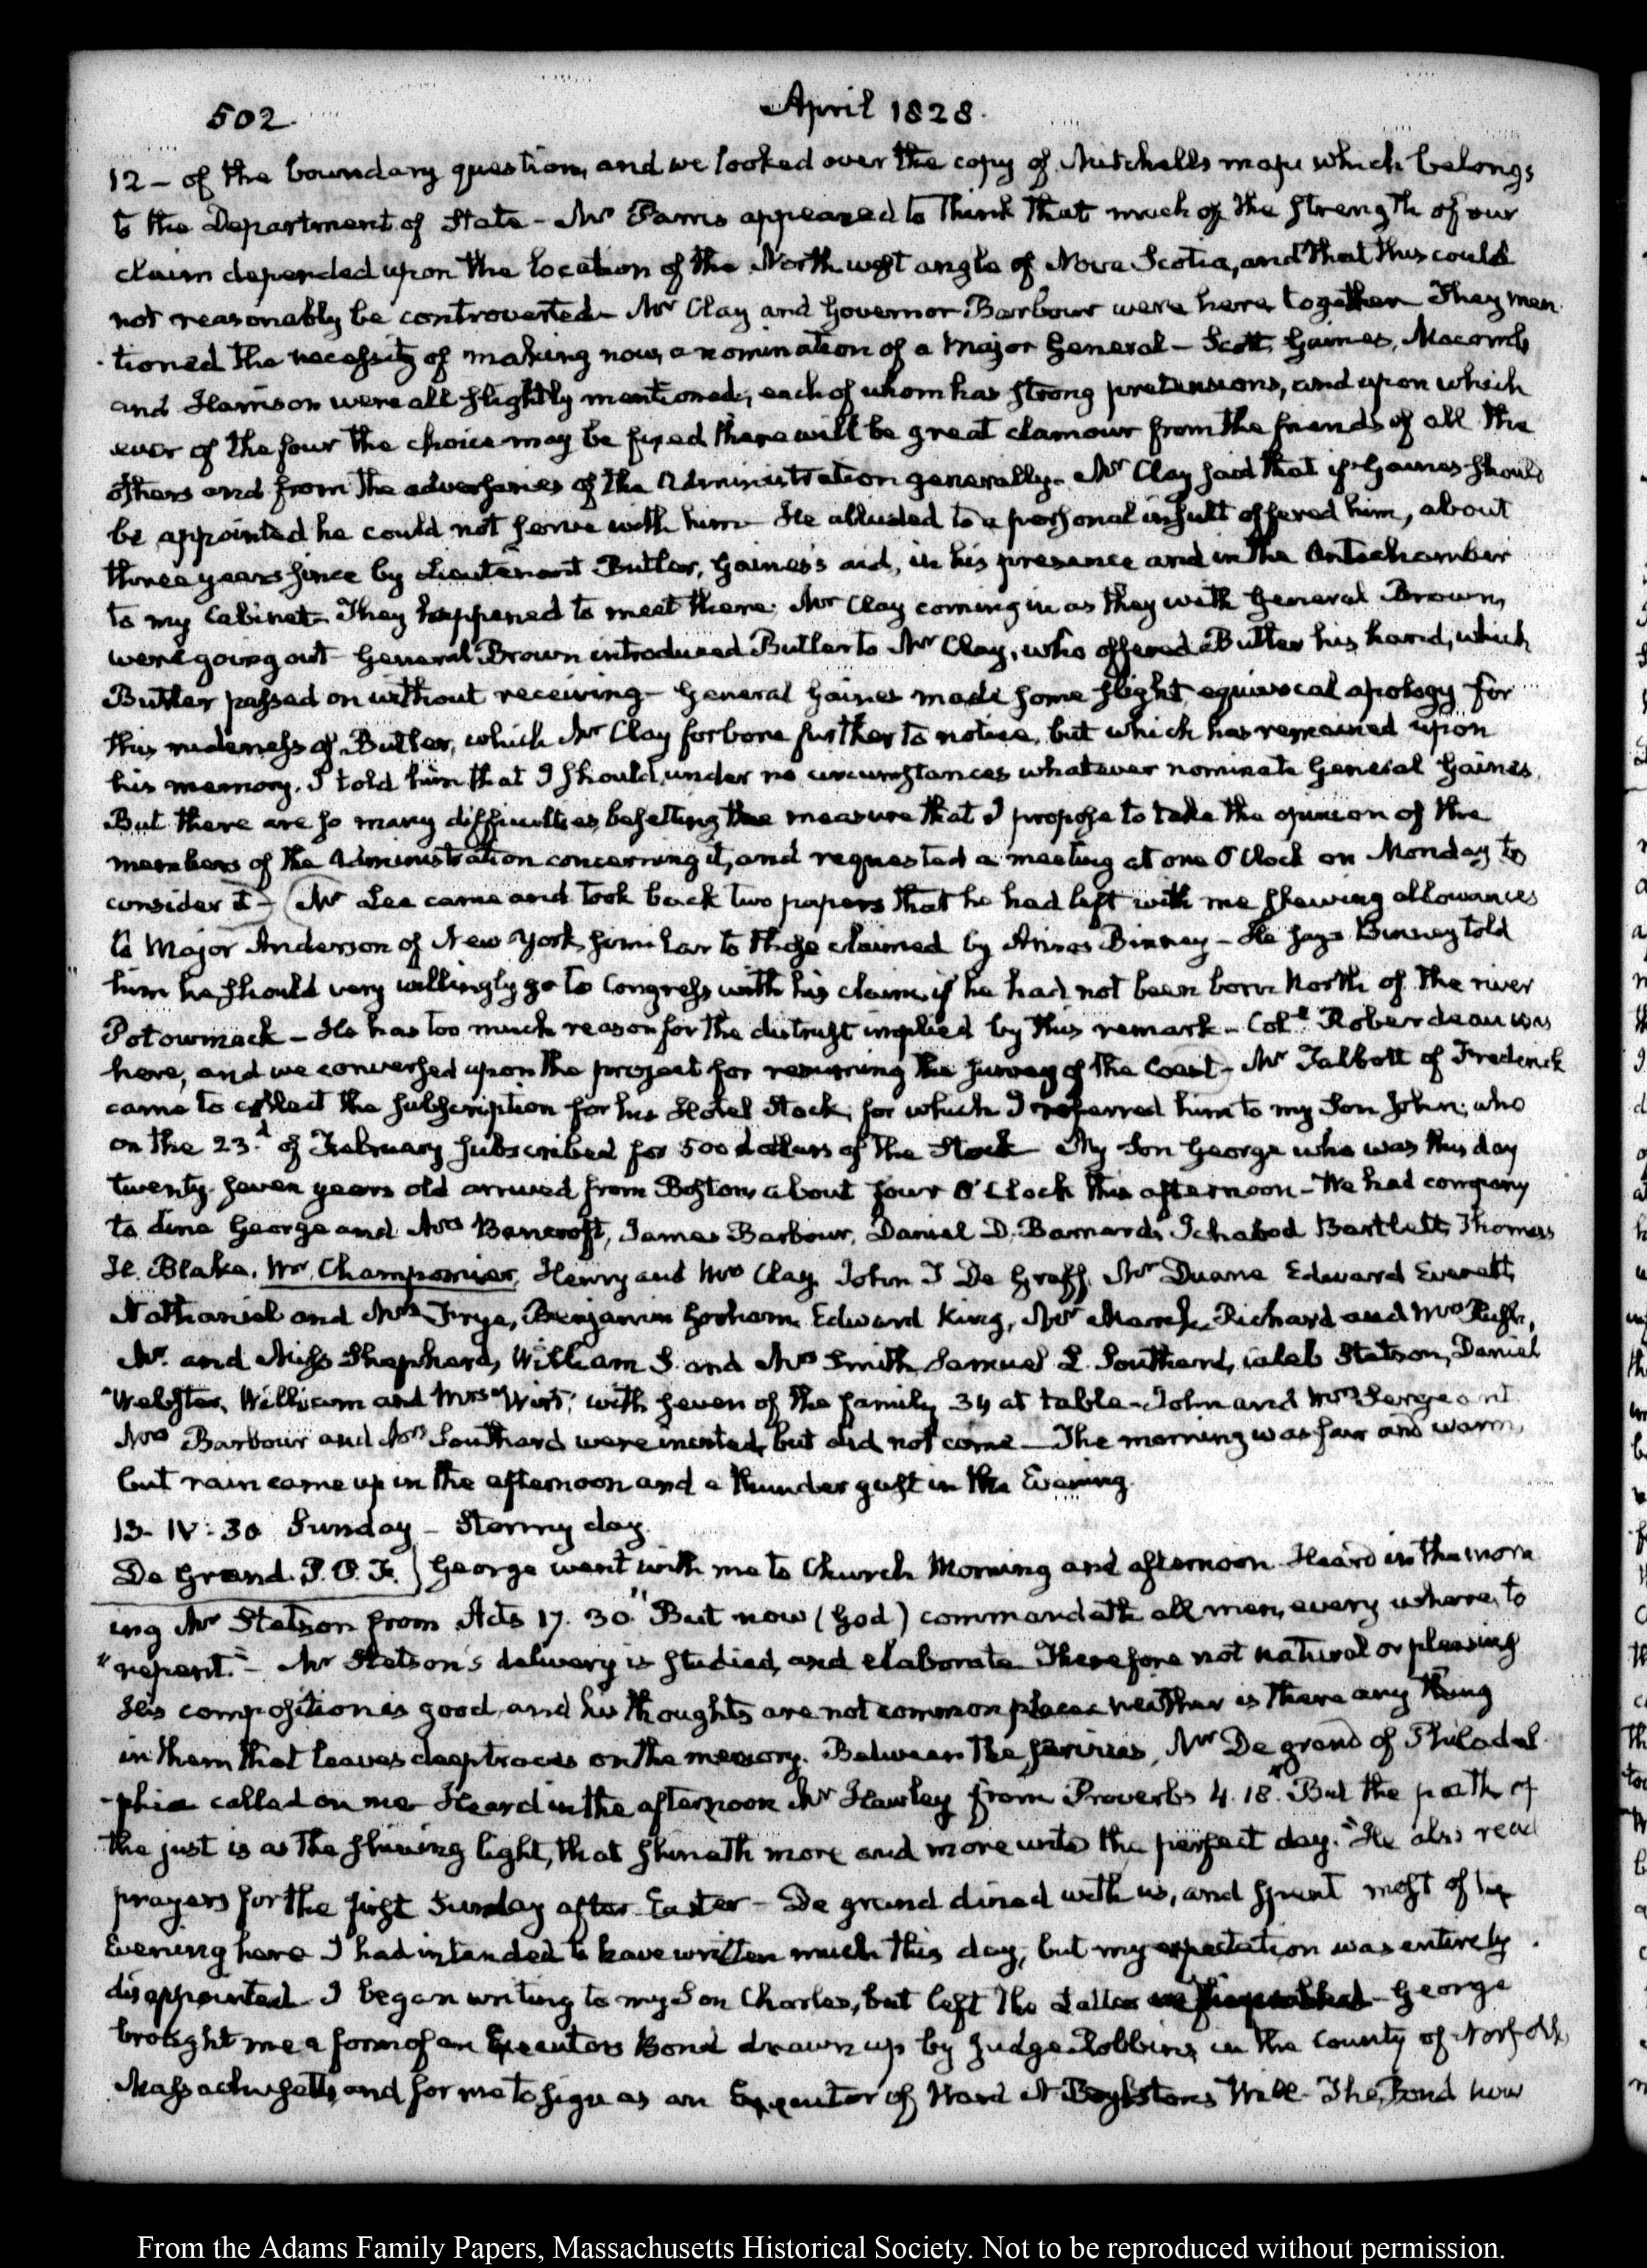 502. April 1828.
12 - of the boundary question, and we looked over the copy of Mitchell's map which belongs
to the Department of State - Mr Parris appeared to think that much of the strength of our
claim depended upon the location of the North west angle of Nova Scotia, and that this could
not reasonably be controverted - Mr Clay and Governor Barbour were here together They men
tioned the necessity of making now, a nomination of a Major General - Scott, Gaines, Macomb
and Harrison were all slightly mentioned, each of whom has strong pretensions, and upon which
ever of the four the choice may be fixed there will be great clamour from the friends of all the
others and from the adversaries of the Administration generally. Mr Clay said that if Gaines should
be appointed he could not serve with him - He alluded to a personal insult offered him, about
three years since by Lieutenant Butler, Gaines's aid, in his presence and in the Antechamber
to my Cabinet - They happened to meet there; Mr Clay coming in as they with General Brown,
were going out - General Brown introduced Butler to Mr Clay, who offered Butler his hand, which
Butler passed on without receiving - General Gaines made some slight, equivocal apology for
this rudeness of Butler, which Mr Clay forbore further to notice, but which has remained upon
his memory. I told him that I should, under no circumstances whatever nominate General Gaines.
But there are so many difficulties besetting the measure that I propose to take the opinion of the
members of the Administration concerning it, and requested a meeting at one O'Clock on Monday to
consider it - Mr Lee came and took back two papers that he had left with me shewing allowances
to Major Anderson of New York similar to those claimed by Amos Binney - He says Binney told
him he should very willingly go to Congress with his claim, if he had not been born North of the river
Potowmack - He has too much reason for the distrust implied by this remark - Coll Roberdeau was
here, and we conversed upon the project for resuming the survey of the Coast - Mr Talbott of Frederick
came to collect the subscription for his Hotel Stock, for which I referred him to my Son John; who
on the 23d of February subscribed for 500 dollars of the Stock - My Son George who was this day
twenty seven years old arrived from Boston, about four O'Clock this afternoon - We had company
to dine George and Mrs Bancroft, James Barbour, Daniel D. Barnard, Ichabod Bartlett, Thomas
H. Blake, Mr. Champomier, Henry and Mrs Clay, John I De Graff, Mr Duane Edward Everett,
Nathaniel and Mrs Frye, Benjamin Gorham, Edward King, Mr Richard and Mrs Rush,
Mr. and Miss Shephard, William S. and Mrs Smith, Samuel L. Southard, Caleb Stetson, Daniel
Webster, William and Mrs Wirt, with seven of the family, 34 at table - John and Mrs Sergeant
Mrs Barbour and Mrs Southard were invited, but did not come - The morning was fair and warm,
but rain came up in the afternoon and a thunder gust in the Evening.
13. IV: 30. Sunday - Stormy day.
De Grand. P. P. F. George went with me to Church Morning and afternoon. Heard in the morn
ing Mr Stetson from Acts 17. 30. "But now (God) commandeth all men, every where, to
"repent." - Mr Stetson's delivery is studied, and elaborate. Therefore not natural or pleasing
His composition is good, and his thoughts are not common place neither is there any thing
in them that leaves deep traces on the memory. Between the services, Mr De grand of Philadel
-phia called on me - Heard in the afternoon Mr Hawley from Proverbs 4. 18. But the path of
the just is as the shining light, that shineth more and more unto the perfect day." He also read
prayers for the first Sunday after Easter - De grand dined with us, and spent most of the
Evening here I had intended to have written much this day, but my expectation was entirely
disappointed - I began writing to my Son Charles, but left the Letter - George
brought me a form of an Executors Bond drawn up by Judge Robbins in the County of Norfolk
Massachusetts, and for me to sign as an Executor of Ward N Boylston's Will - The Bond now
From the Adams Family Papers, Massachusetts Historical Society. Not to be reproduced without permission.